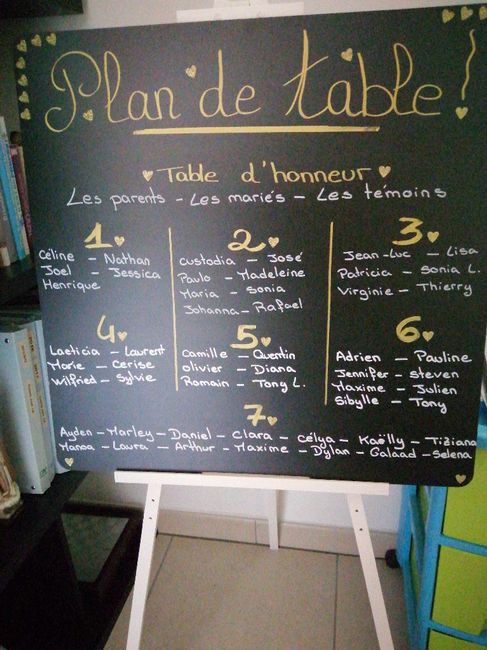 Plan de table !
Table d'honneur
Les parents - Les mariés - Les témoins
1
Céline - Nathan
Joel - Jessica
Henrique
2
Custodia - José
Paulo - Madeleine
Maria - Sonia
Johanna - Rafael
3
Jean-Luc - Lisa
Patricia - Sonia L.
Virginie - Thierry
4
Laeticia - Laurent
Marie - Cerise
Wilfried - Sylvie
5
Camille - Quentin
Olivier - Diana
Romain - Tony L.
6
Adrien - Pauline
Jennifer - Steven
Maxime - Julien
Sibylle - Tony
7
Ayden - Marley - Daniel - Clara - Célya - Kaëlly - Tiziana
Manoa - Laura - Arthur - Maxime - Dylan - Galaad - Selena